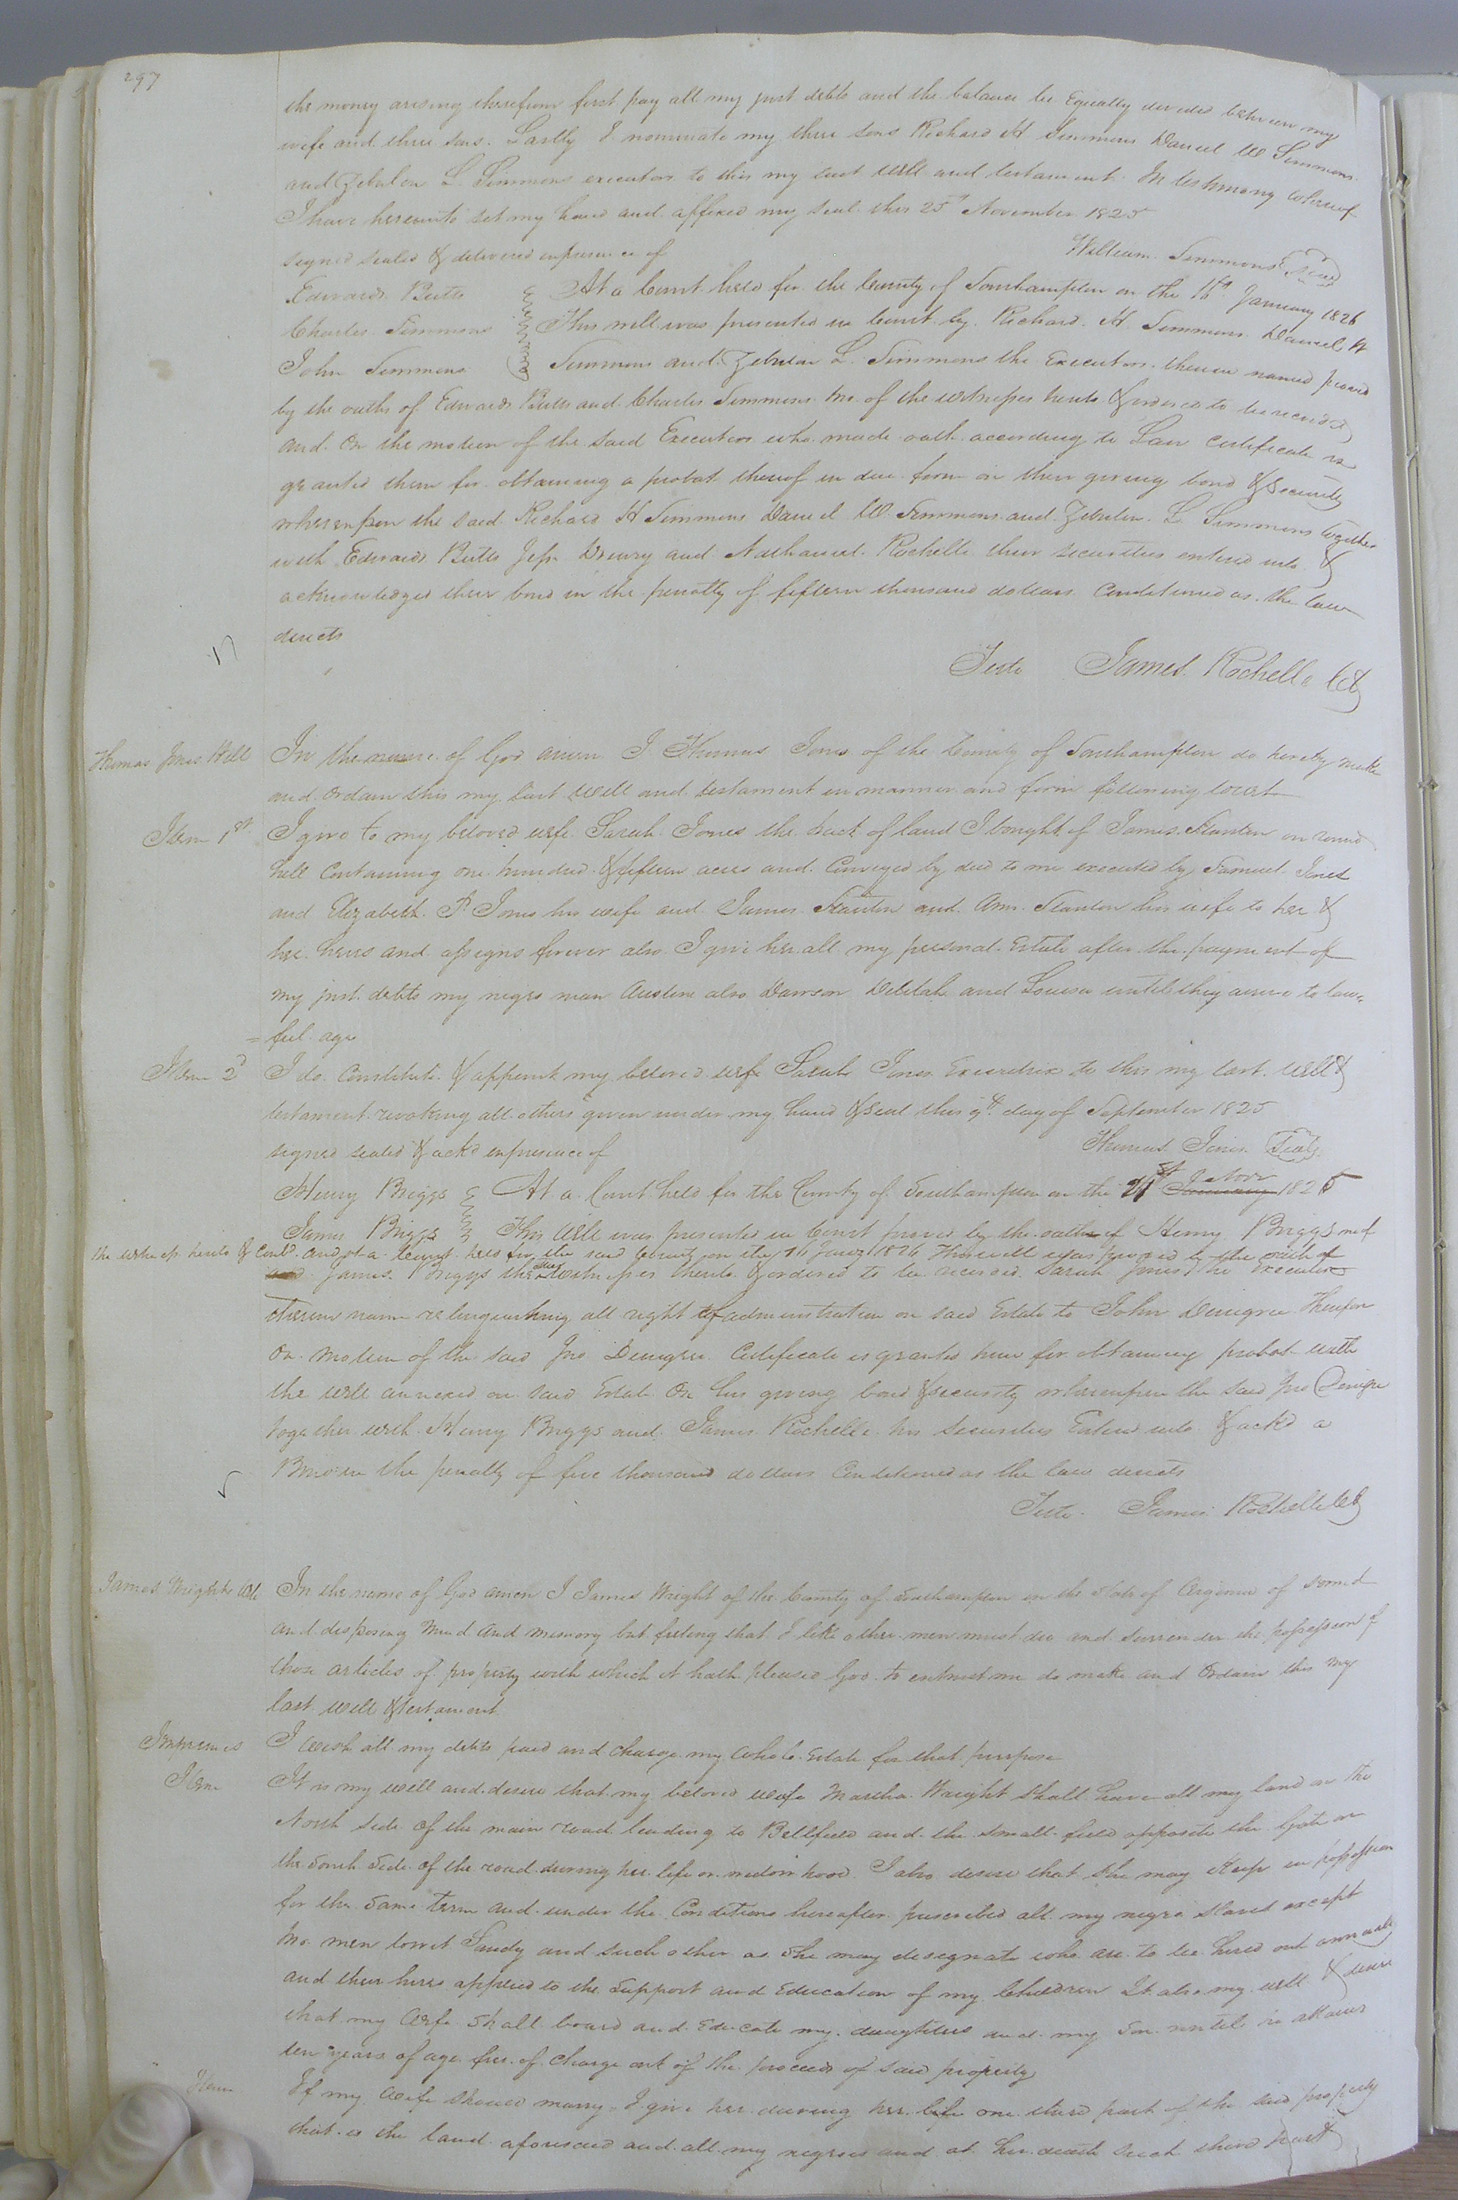 297
the money arising therefrom first pay all my just debts and the balance be Equally devided between my
wife and three sons. Lastly I nominate my three sons Richard H Simmons Daniel W Simmons
and Zebulon L. Simmons executors to this my last will and testament. In testimony whereof
I have hereunto set my hand and affixed my seal this 25th November 1825
signed sealed & delivered inpresence of
William Simmons Seal
Edwards Butts
At a Court held for the County of Southampton on the 16th January 1826
Charles Simmons
This will was presented in Court by Richard H Simmons Daniel W
John Simmons
Simmons and Zebulon L. Simmons the Executors therein named proved
by the oaths of Edwards Butts and Charles Simmons two of the witnesses hereto & ordered to be recorded
and on the motion of the said Executors who made oath according to Law certificate is
granted them for obtaining a probat thereof in due form on their giving bond & security
whereupon the said Richard H Simmons Daniel W. Simmons and Zebulon L Simmons together
with Edwards Butts Jesse Drewry and Nathaniel Rochelle their securities entered into &
acknowledged their bond in the penalty of fifteen thousand dollars Conditioned as the law
directs
Teste James Rochelle Ck
Thomas Jones Will
In the name of God amen I Thomas Jones of the County of Southampton do hereby make
and ordain this my last Will and testament in manner and form following towit
Item 1st
I give to my beloved wife Sarah Jones the tract of land I bought of James Stanton on round
hill Containing one hundred & fifteen acres and Conveyed by deed to me executed by Samuel Jones
and Elizabeth P. Jones his wife and James Stanton and Ann Stanton his wife to her &
her heirs and assigns forever also I give her all my personal Estate after the payment of
my just debts my negro man Austin also Dawson Delilah and Louisa until they arrive to law=
=ful age
Item 2d
I do Constitute & appoint my beloved wife Sarah Jones Executrix to this my last will &
testament revoking all others given under my hand & seal this 9th day of September 1825
signed sealed & ackd inpresence of
Thomas Jones Seal
Henry Briggs
At a Court held for the County of Southampton on the 21st January Novr 1825
James Briggs
This Will was presented in Court proved by the oath of Henry Briggs one of
the witnesses hereto & Contd. and at a Court held for the said County on the 16 Jany 1826 This will was proved by the oath of
and James Briggs the other witnesses thereto & ordered to be recorded Sarah Jones the Executrix
therein name relinquishing all right of administration on said Estate to John Denegre Thereupon
on motion of the said Jno Denegre Certificate is granted him for obtaining probat with
the will annexed on said Estate on his giving bond & security whereupon the said Jno Denegre
together with Henry Briggs and James Rochelle his securities Entered into & ackd a
Bond in the penalty of five thousand dollars Conditioned as the law directs
Teste James Rochelle Ck
James Wrights Will
In the name of God amen I James Wright of the County of Southampton in the state of Virginia of sound
and disposing mind and memory but feeling that I like other men must die and surrender the possession of
those articles of property with which it hath pleased God to entrust me do make and ordain this my
last will & testament
Imprimis
I wish all my debts paid and charge my whole Estate for that purpose
Item
It is my will and desire that my beloved wife Martha Wright shall have all my land on the
North side of the main road leading to Bellfield and the small field opposite the gate on
the South side of the road during her life or widow hood I also desire that she may keep in possession
for the same term and under the Conditions hereafter prescribed all my negro slaves except
two men towit Sandy and such other as she may designate who are to be hired out annually
and their hires applied to the support and education of my Children It also my will & desire
that my Wife shall board and Educate my daughters and my son until he attains
ten years of age free of charge out of the proceeds of said property
Item
If my Wife should marry I give her during her life one third part of the said property
that is the land aforesaid and all my negroes and at her death such third part